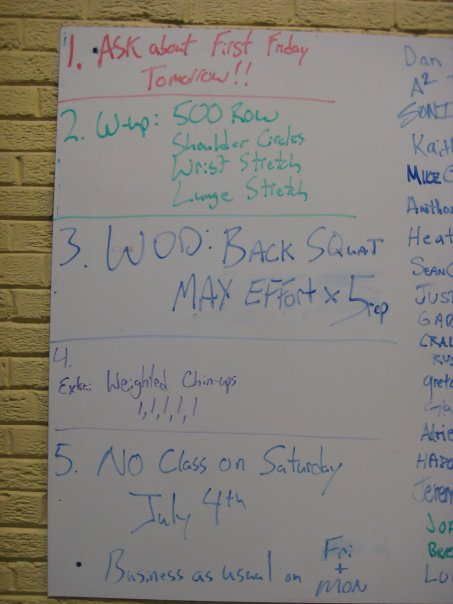 1. ASK about First Friday
Tomorrow!!
2. W-up: 500 Row
Shoulder Circles
Wrist Stretch
Lunge Stretch
3. WOD: BACK SQUAT
MAX EFFORT x 5rep
4.
Extra: Weighted Chin-ups
1,1,1,1,1
5. No Class on Saturday
July 4th
• Business as usual on Fri
+
Mon
Dan
A²
SONI
Kait
MIKE
Anthon
Heat
SEAN
JUST
GAR
CRAI
RUS
Gret
Adrie
HARO
Jerem
JOR
BRE
LO